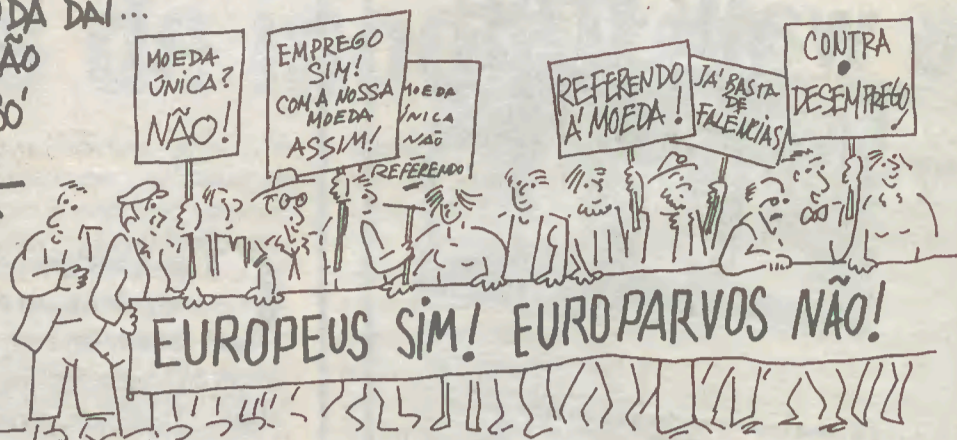 DA DAÍ...
ÃO
SÓ
MOEDA
ÚNICA?
NÃO!
EMPREGO
SIM!
COM A NOSSA
MOEDA
ASSIM!
MOEDA
ÚNICA
NÃO
REFERENDO
REFERENDO
À MOEDA!
JÁ BASTA
DE
FALÊNCIAS!
CONTRA
O
DESEMPREGO!
EUROPEUS SIM! EUROPARVOS NÃO!